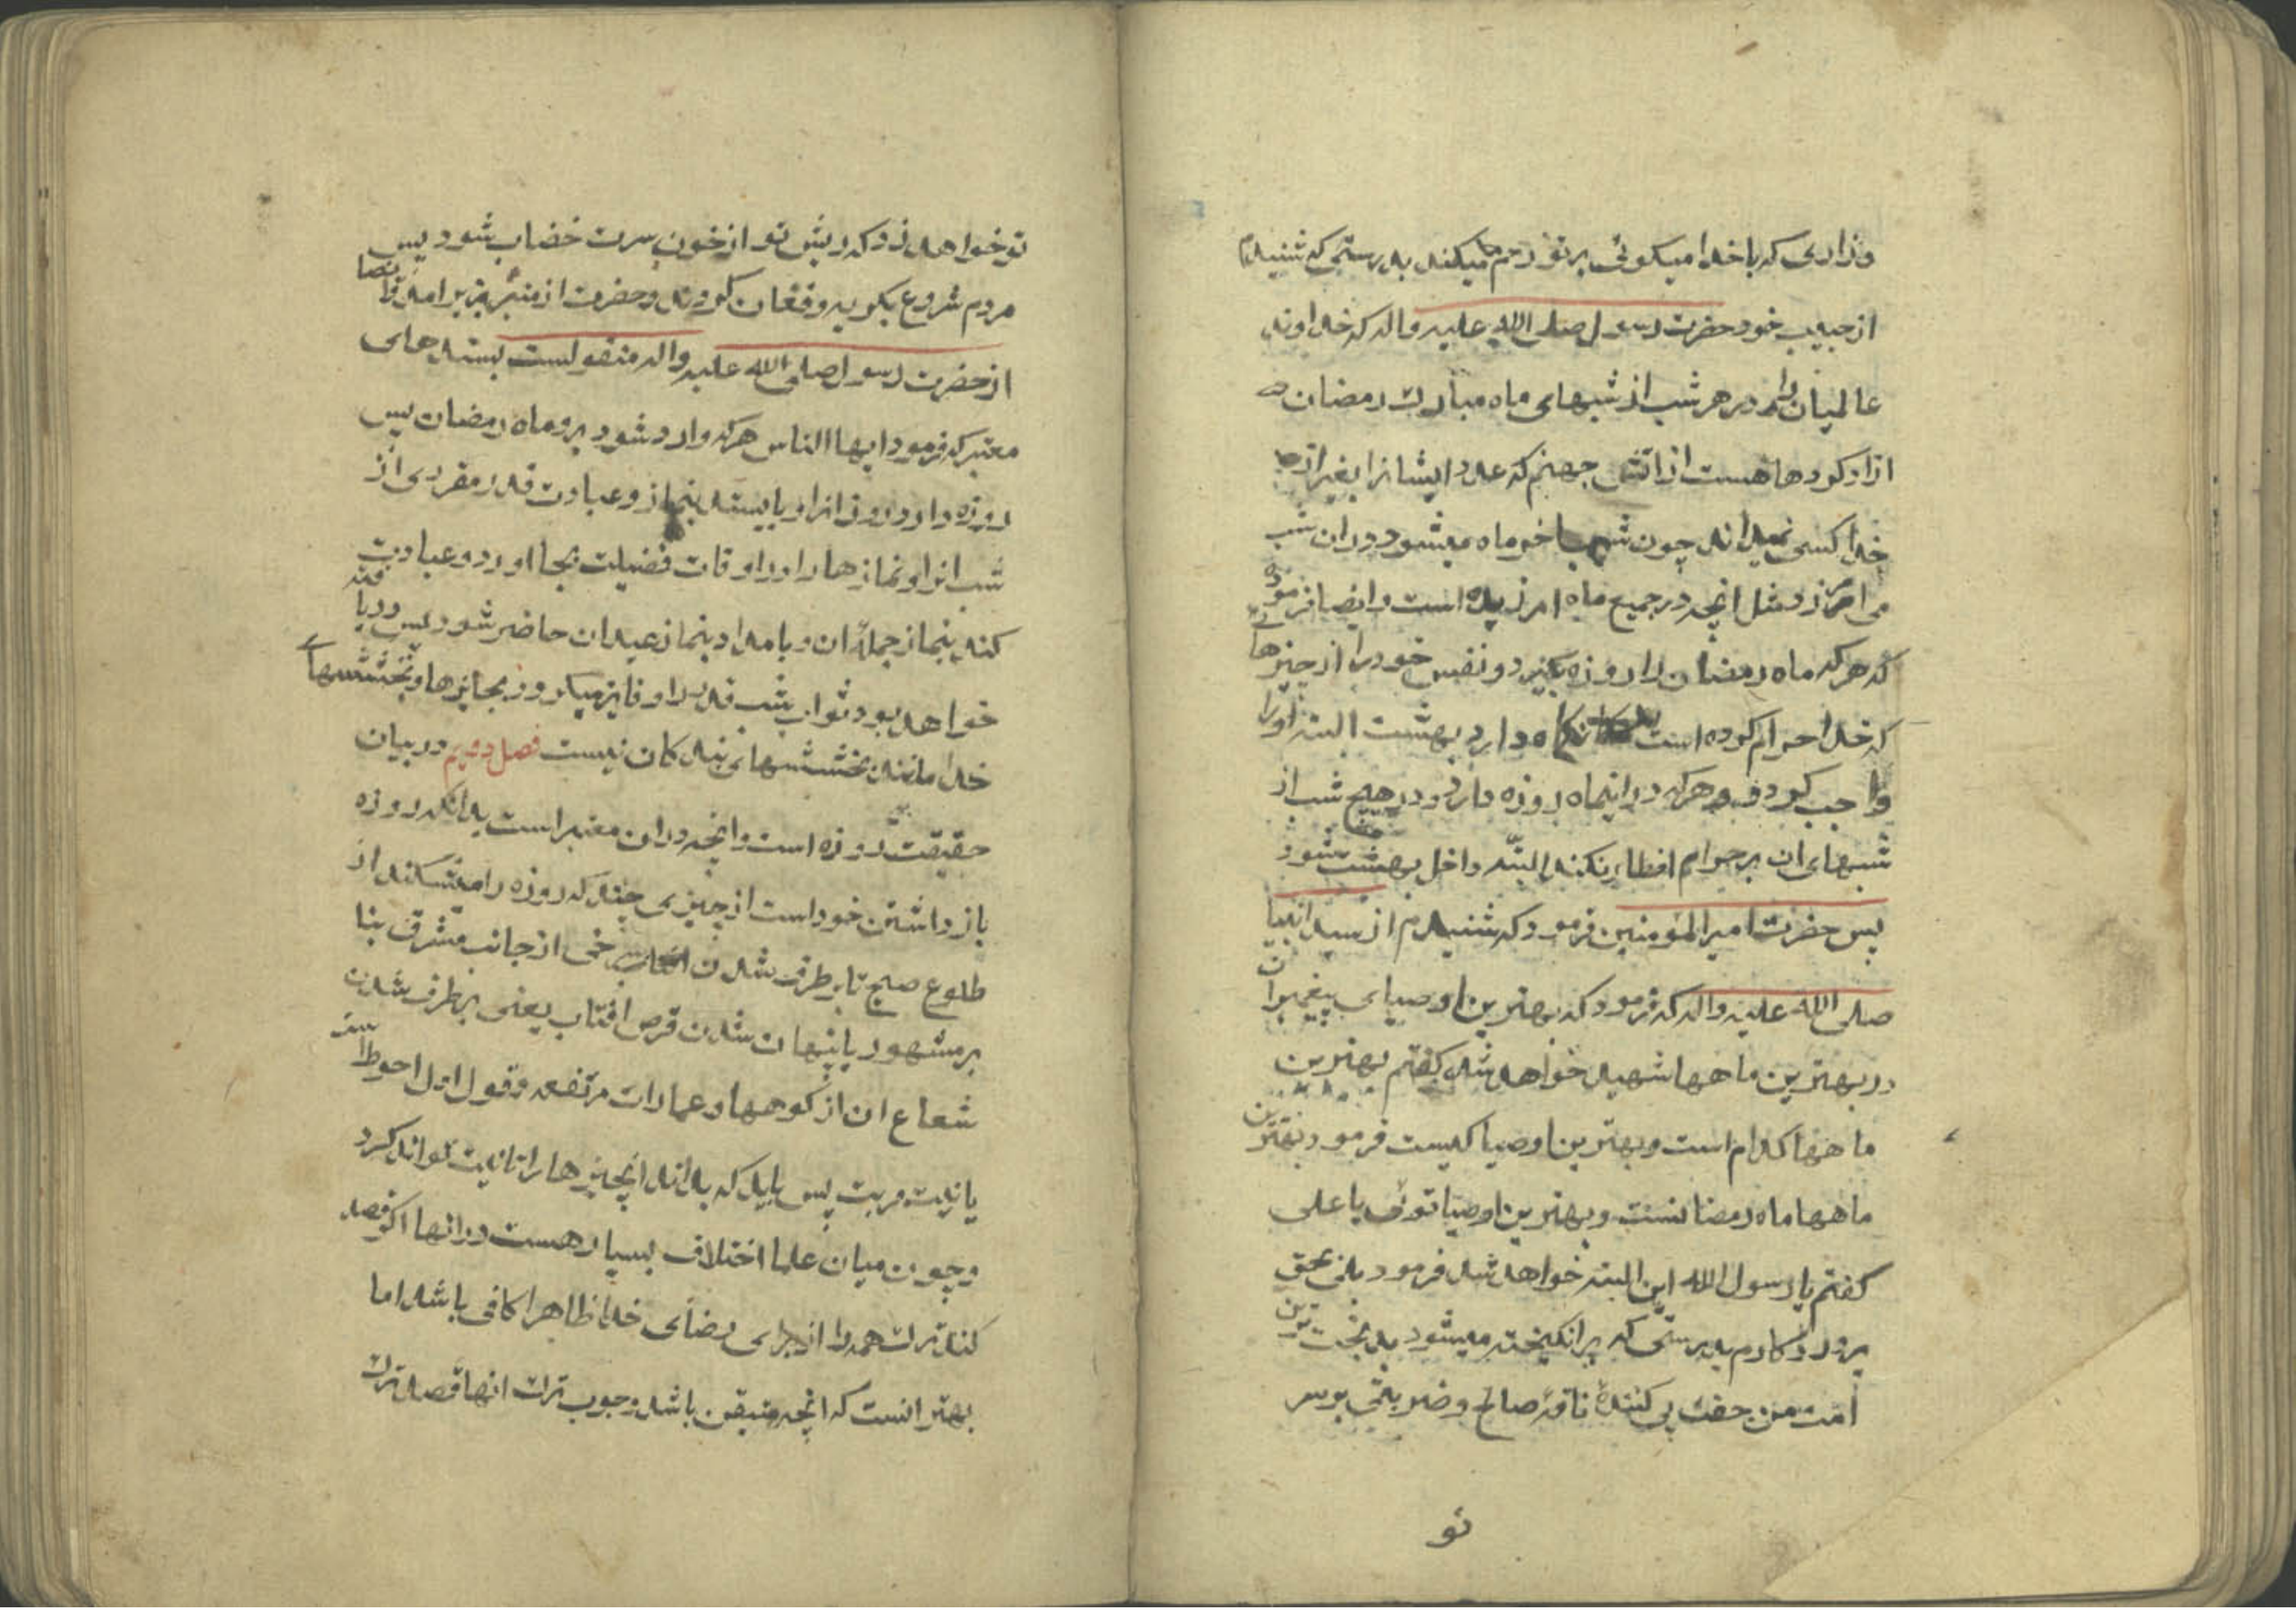 وزاری که با خدا میکوئی بر تو رحم میکند بدرستی که شنیدم
از حبیب خود حضرت رسول صلی الله علیه واله که خداوند
عالمیان را در هر شب از شبهای ماه مبارک رمضان
ازاد کردها هست از اتش جهنم که عدد ایشانرا بغیر از
خدا کسی نمیداند چون شب اخر ماه میشود دران شب
می امرزد مثل انچه در جمیع ماه امرزیده است وایضا فرمود
که هر که ماه رمضان را روزه بگیرد و نفس خود را از چیزها
که خدا حرام کرده است نکاه دارد بهشت البته اورا
واجب کردد و هر که در اینماه روزه دارد و در هیچ شب از
شبهای ان بر حرام افطار نکند البته داخل بهشت شود
پس حضرت امیر المؤمنین فرمود که شنیدم از سید انبیا
صلی الله علیه واله که فرمود که بهترین اوصیای پیغمبران
در بهترین ماهها شهید خواهد شد کفتم بهترین
ماهها کدام است و بهترین اوصیا کیست فرمود بهترین
ماهها ماه رمضانست و بهترین اوصیا توئی یا علی
کفتم یا رسول الله این البته خواهد شد فرمود بلی بحق
پروردکارم بدرستی که برانکیخته میشود بدبخت ترین
امت من جفت پی کنندهٔ ناقهٔ صالح وضربتی بر سر
تو
تو خواهد زد که ریش تو از خون سرت خضاب شود پس
مردم شروع بکریه و فغان کردند وحضرت از منبر بزیر امد وایضا
از حضرت رسول صلی الله علیه واله منقولست بسندهای
معتبر که فرمود ایها الناس هر که وارد شود بر او ماه رمضان پس
روزه دارد روز انرا و بایستد بنماز وعبادت قدر مقرری از
شب انرا و نمازها را در اوقات فضیلت بجا اورد و عبادت
کند بنماز جمعهٔ ان و بامداد بنماز عید ان حاضر شود پس دریافته
خواهد بود ثواب شب قدر را و فایز میکردد بجایزها وبخششهای
خدا مانند بخششهای بندکان نیست فصل دویم در بیان
حقیقت روزه است وانچه دران معتبر است بدانکه روزه
باز داشتن خود است از چیزی چند که روزه را میشکند از
طلوع صبح تا بر طرف شدن سرخی از جانب مشرق بنا
بر مشهور یا پنهان شدن قرص افتاب یعنی برطرف شدن
شعاع ان از کوهها وعمارات مرتفعه وقول اول احوط است
با نیت قربت پس باید که بداند انچیزها را تا نیت تواند کرد
وچون میان علما اختلاف بسیار هست در انها اکر قصد
کند ترک همه را از برای رضای خدا ظاهرا کافی باشد اما
بهتر انست که انچه متیقن باشد وجوب ترک انها قصد ترک